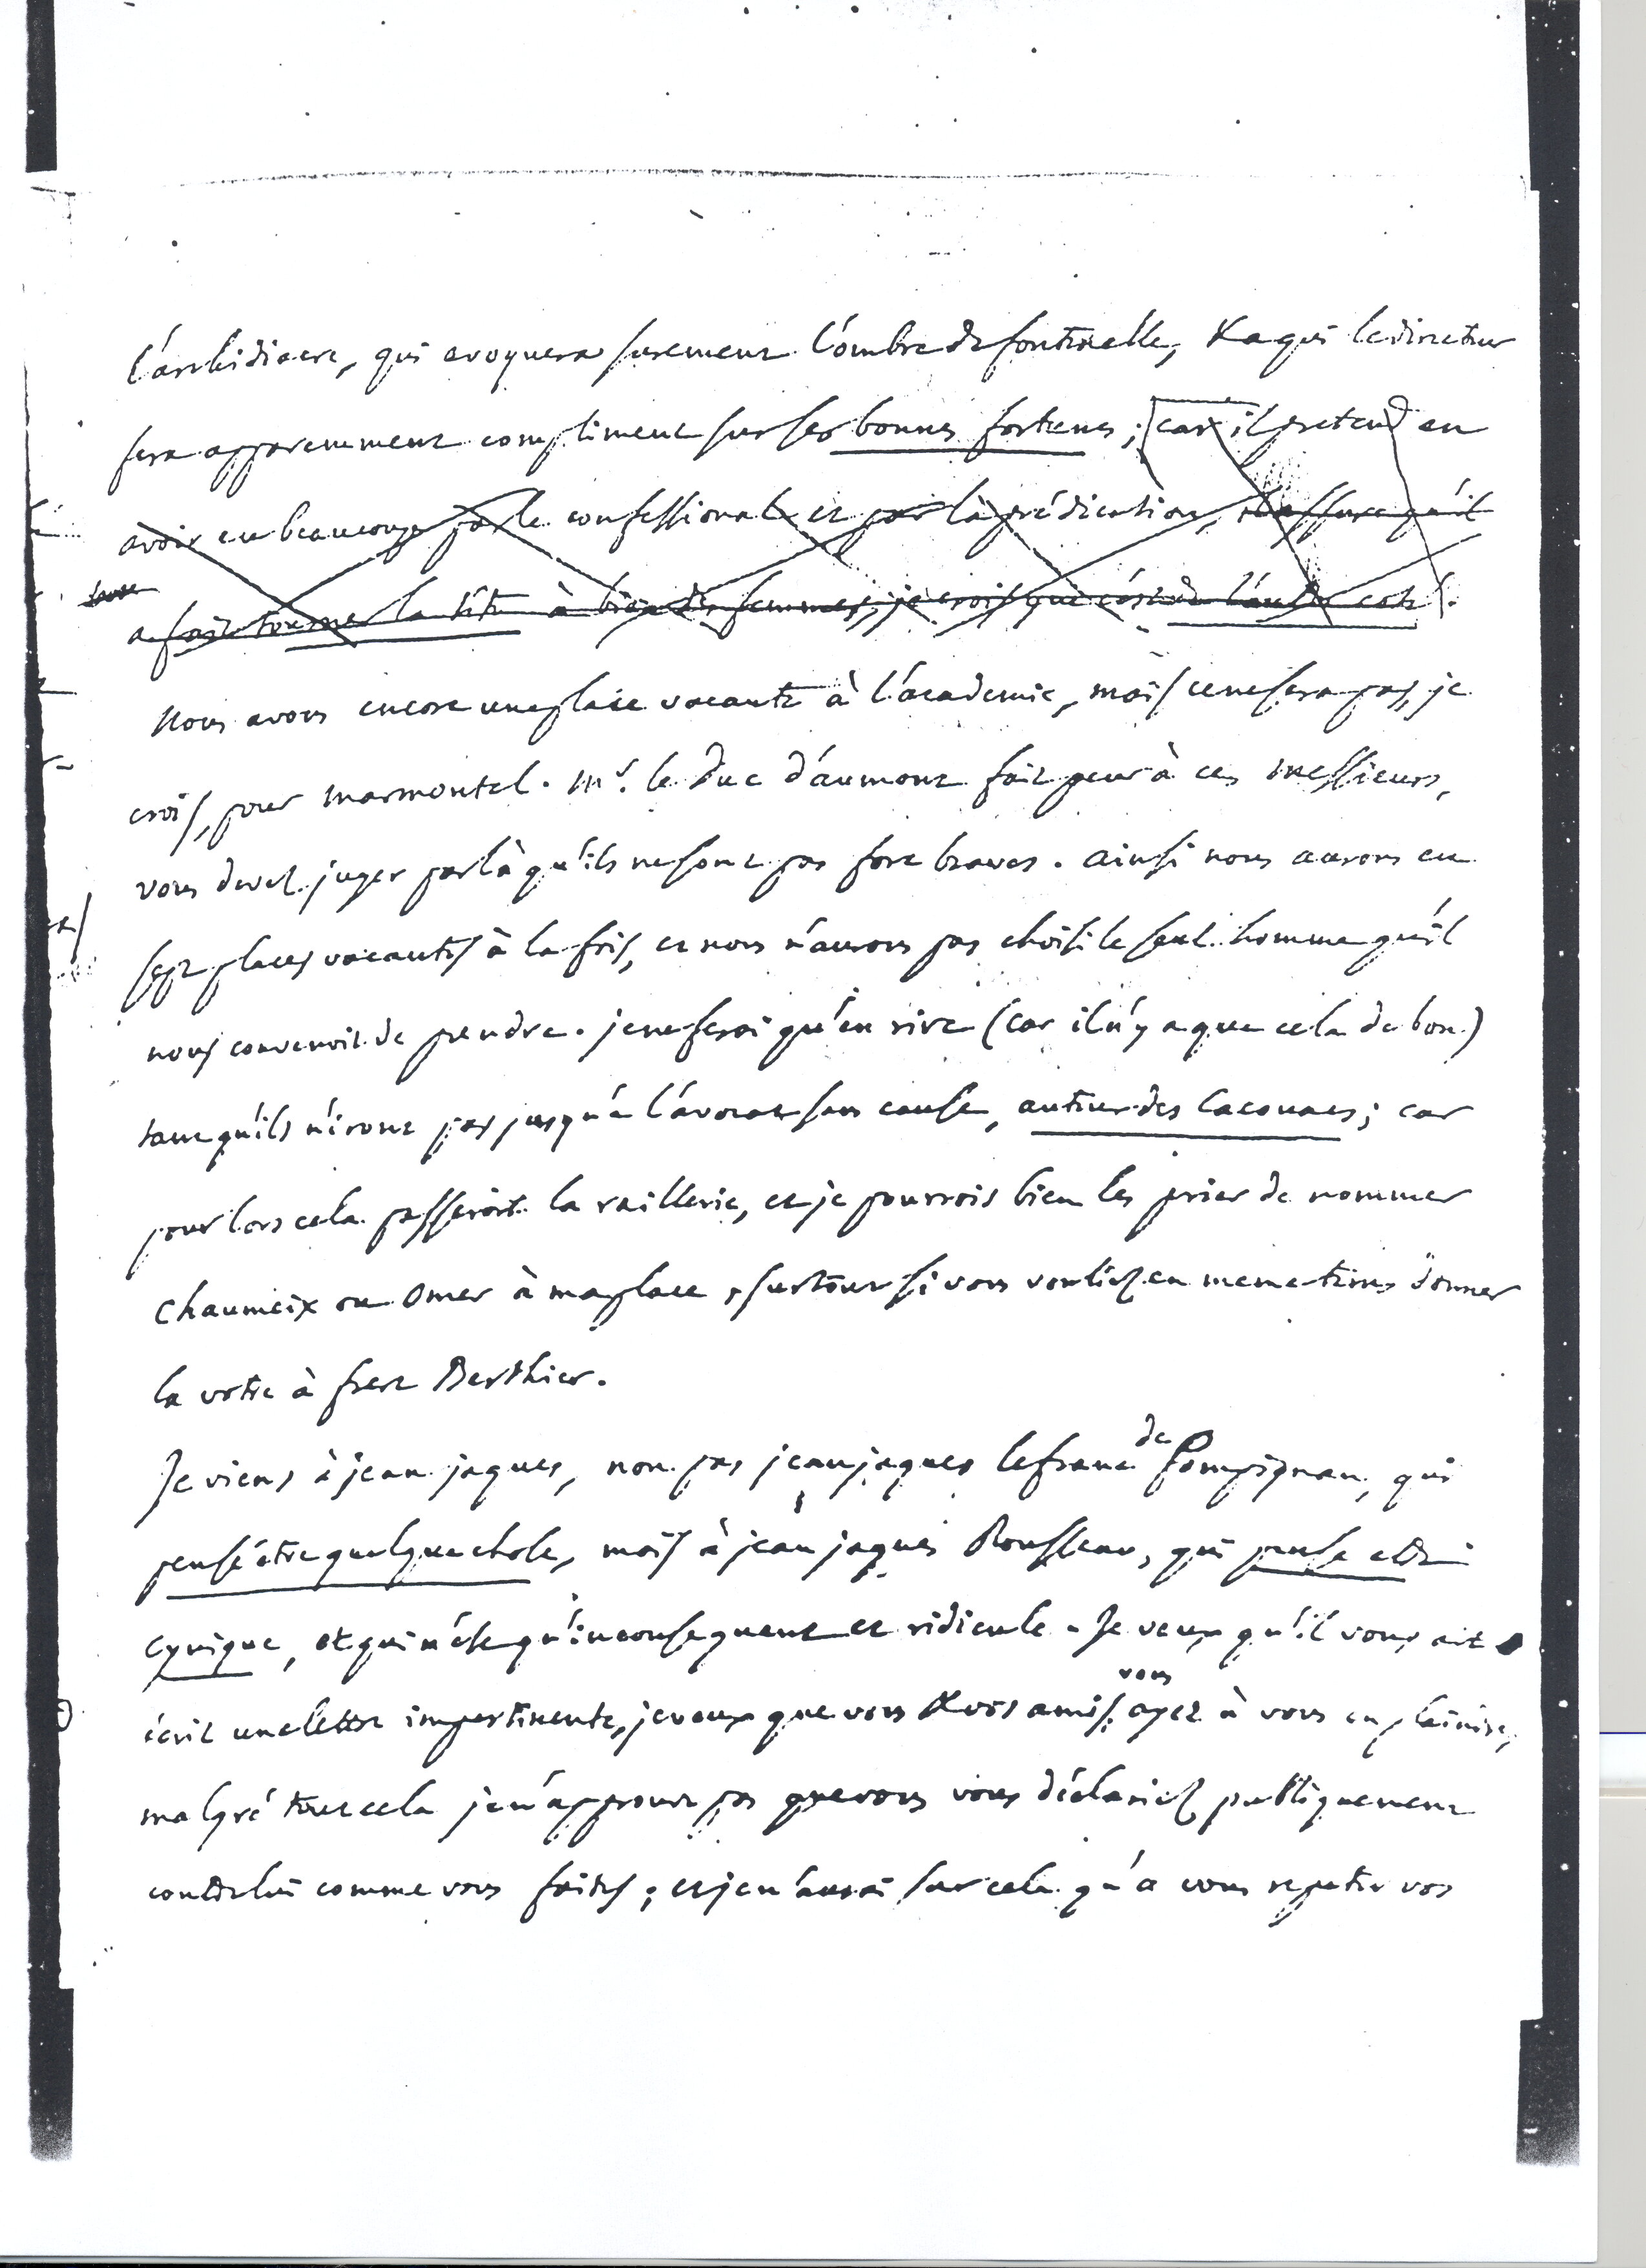 l'archidiacre, qui evoquera surement l'ombre de fontenelle, & a qui le directeur
fera apparemment compliment sur ses bonnes fortunes; [car il pretend en
avoir eu beaucoup par le confessional et par la prédication, il assure qu'il
a fait tourner la tête à bien des femmes; je crois que c'est de l'autre coté].
Nous avons encore une place vacante à l'academie, mais ce ne sera pas, je
crois, pour marmontel. Mr. le Duc d'aumont fait peur à ces messieurs,
vous devez juger par là qu'ils ne sont pas fort braves. ainsi nous aurons eu
sept places vacantes à la fois, et nous n'aurons pas choisi le seul homme qu'il
nous convenoit de prendre. je ne ferai qu'en rire (car il n'y a que cela de bon)
tant qu'ils n'iront pas jusqu'à l'avocat sans cause, auteur des Cacouacs; car
pour lors cela passeroit la raillerie, et je pourrois bien les prier de nommer
Chaumeix ou Omer à ma place, surtout si vous vouliez en meme tems donner
la votre à frere Berthier.
Je viens à jean jaques, non pas jean jaques lefranc de Pompignan, qui
pense être quelque chose, mais à jean jaques Rousseau, qui pense etre
cynique, et qui n'est qu'inconsequent et ridicule. Je veux qu'il vous ait
écrit une lettre impertinente, je veux que vous & vos amis, vous ayez à vous en plaindre,
malgré tout cela je n'approuve pas que vous vous déclariez publiquement
contre lui comme vous faites; et je n'aurai sur cela qu'a vous repeter vos